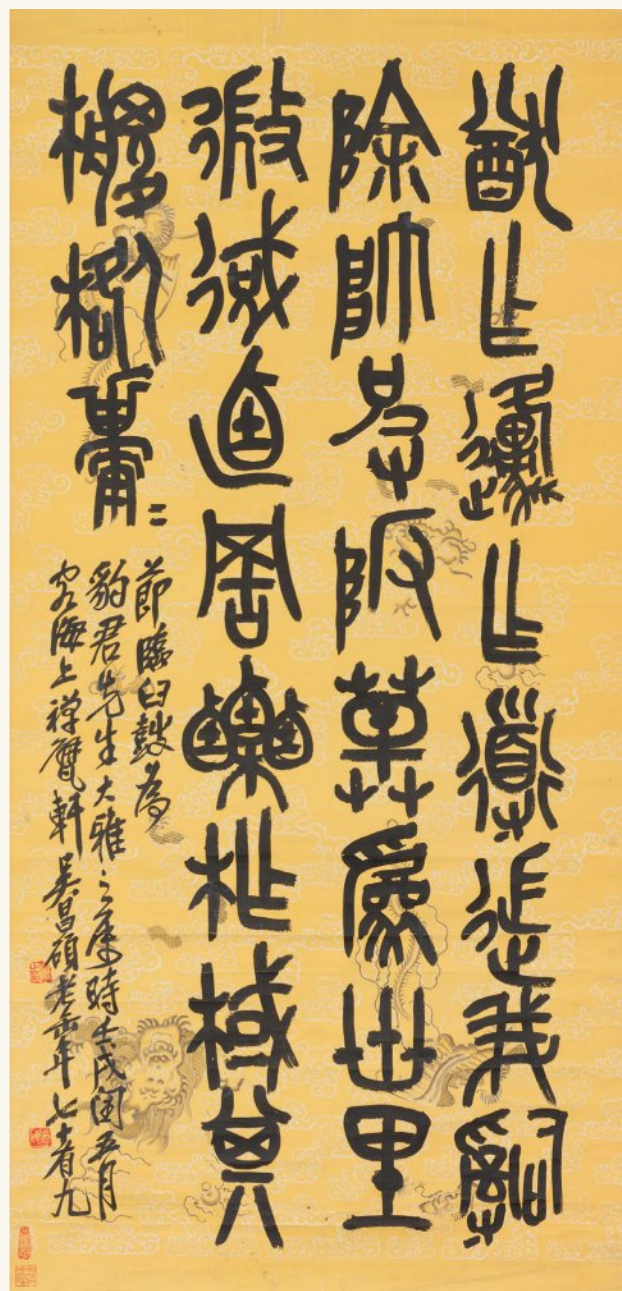 猷乍邍乍導迧我𤔲
除帥皮阪草爲卅里
微逌罟栗柞棫其
椶楛
節臨石鼓為
豹君先生大雅之屬時壬戌閏五月
客海上禪甓軒吳昌碩老缶年七十有九